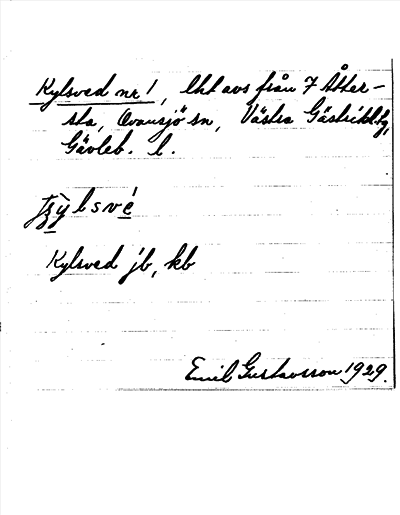 Kylsved nr 1, lht avs från 7 Åtter-
sta, Ovansjö sn, Västra Gästrikl. tg,
Gävleb. l.
Kylsved jb, kb
Emil Gustavsson 1929.